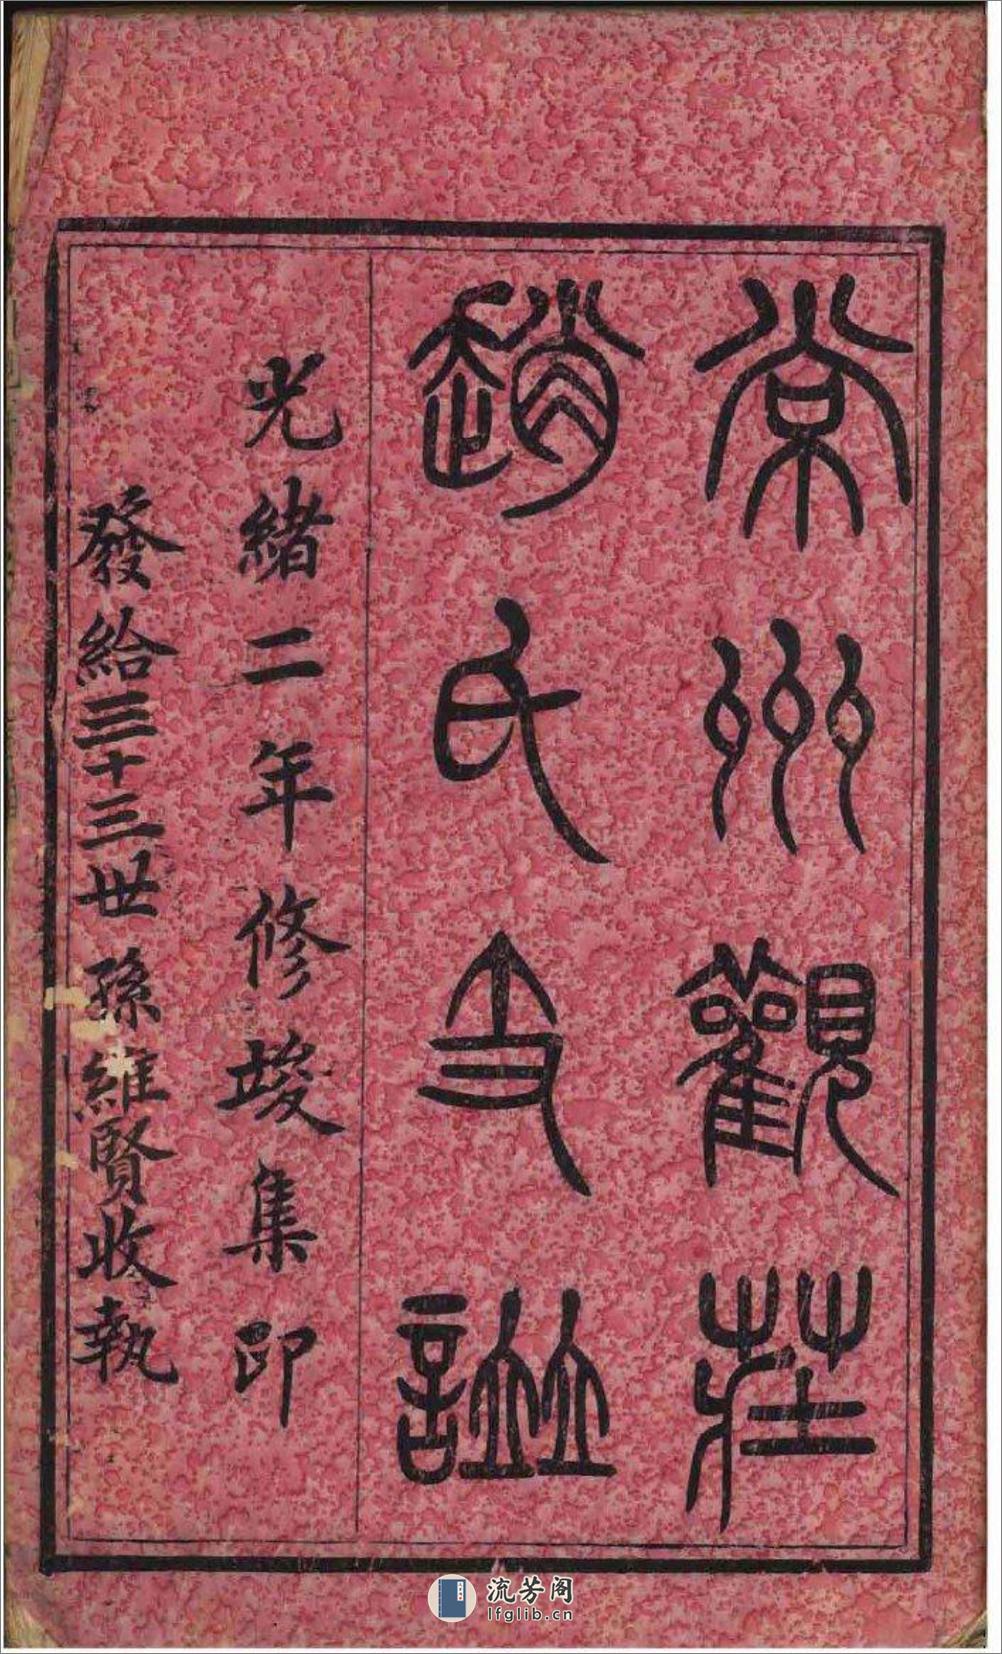 常州觀莊
趙氏支譜
光緒二年修竣集印
發給三十三世孫維賢收執
流芳阁
lfglib.cn